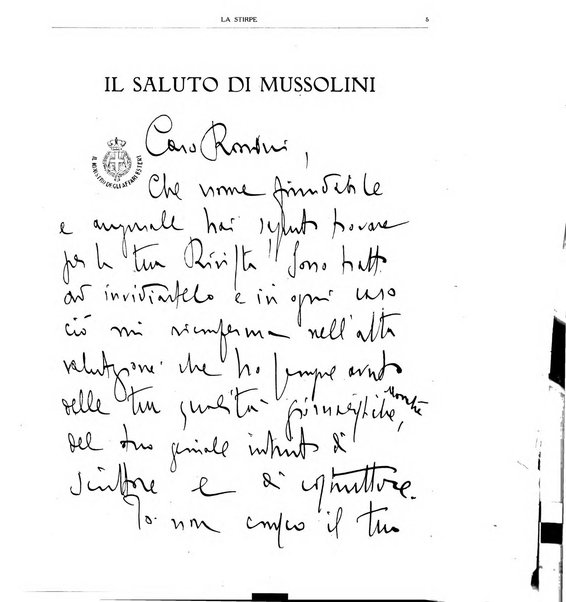 LA STIRPE 5
IL SALUTO DI MUSSOLINI
IL MINISTRO DEGLI AFFARI ESTERI
Caro Rossoni,
Che nome formidabile
e augurale hai saputo trovare
per la tua Rivista! Sono tratto
ad invidiartelo e in ogni caso
ciò mi riconferma nell'alta
valutazione che ho sempre avuto
delle tue qualità giornalistiche, nonché
del tuo geniale intuito di
scrittore e di costruttore.
Io non conosco il tuo